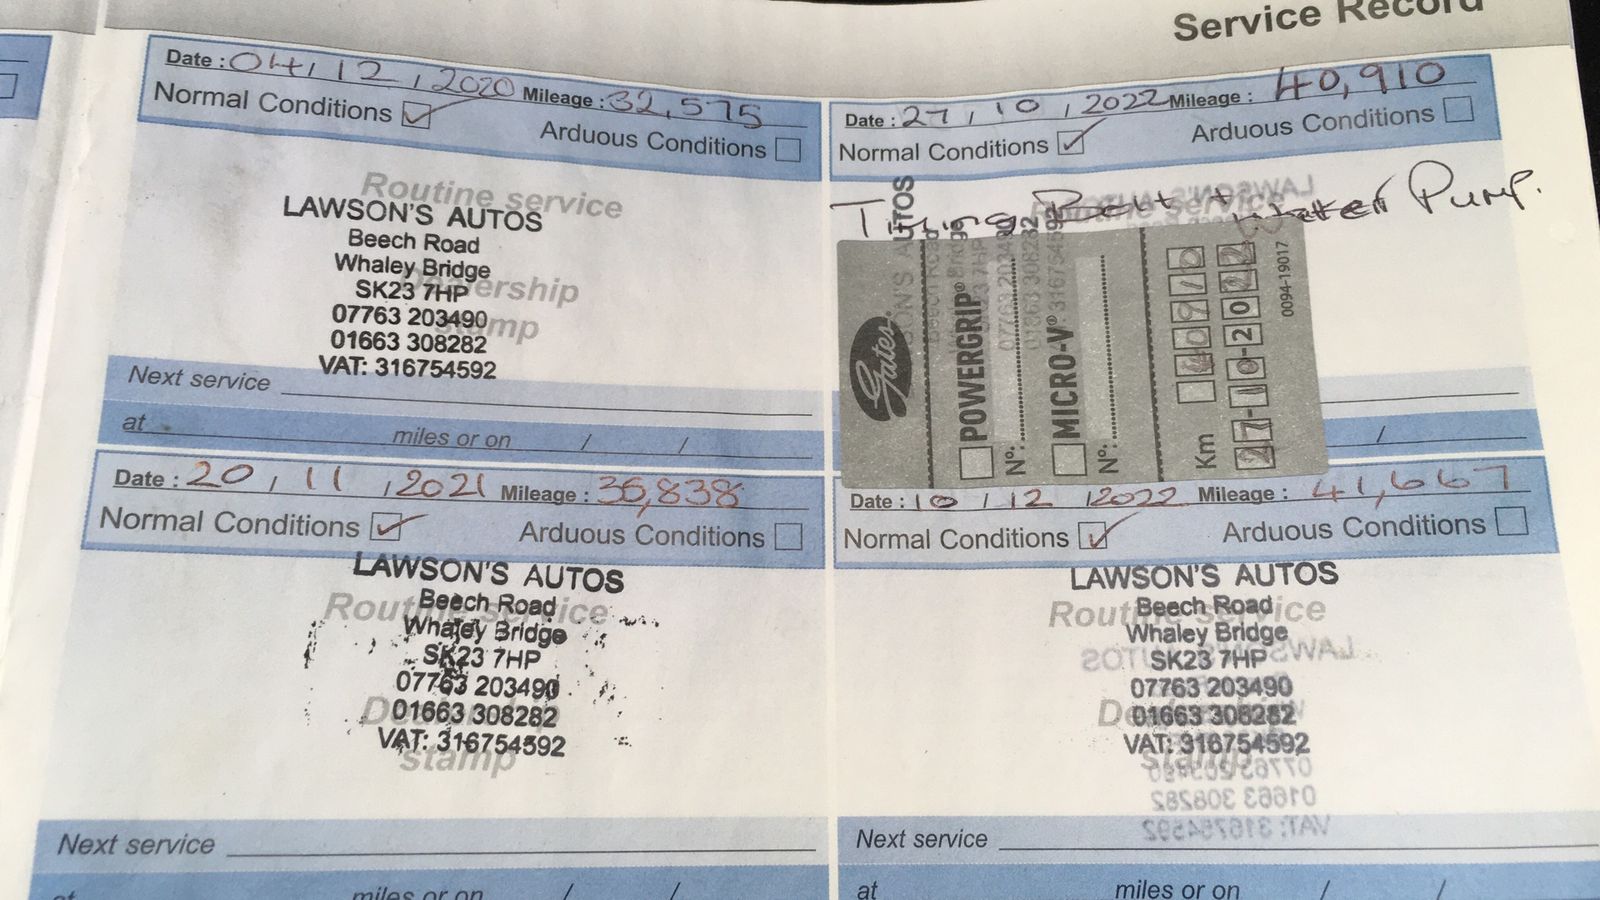 Service Record
Date : 04 / 12 / 2020 Mileage : 32,575
Normal Conditions
Arduous Conditions
Routine service
LAWSON'S AUTOS
Beech Road
Whaley Bridge
SK23 7HP
Dealership
07763 203490
stamp
01663 308282
VAT: 316754592
Next service
at miles or on / /
Date : 27 / 10 / 2022 Mileage : 40,910
Normal Conditions
Arduous Conditions
Timing Belt + Water Pump.
Routine service
LAWSON'S AUTOS
Gates
POWERGRIP®
Nº:
MICRO-V®
Nº:
Km 40910
27-10-2022
0094-19017
/
Date : 20 / 11 / 2021 Mileage : 36,838
Normal Conditions
Arduous Conditions
LAWSON'S AUTOS
Routine service
Beech Road
Whaley Bridge
SK23 7HP
07763 203490
Dealership
01663 308282
VAT: 316754592
stamp
Next service
at miles or on / /
Date : 10 / 12 / 2022 Mileage : 41,667
Normal Conditions
Arduous Conditions
LAWSON'S AUTOS
Routine service
Beech Road
Whaley Bridge
SK23 7HP
07763 203490
Dealership
01663 308282
VAT: 316754592
stamp
Next service
at miles or on / /